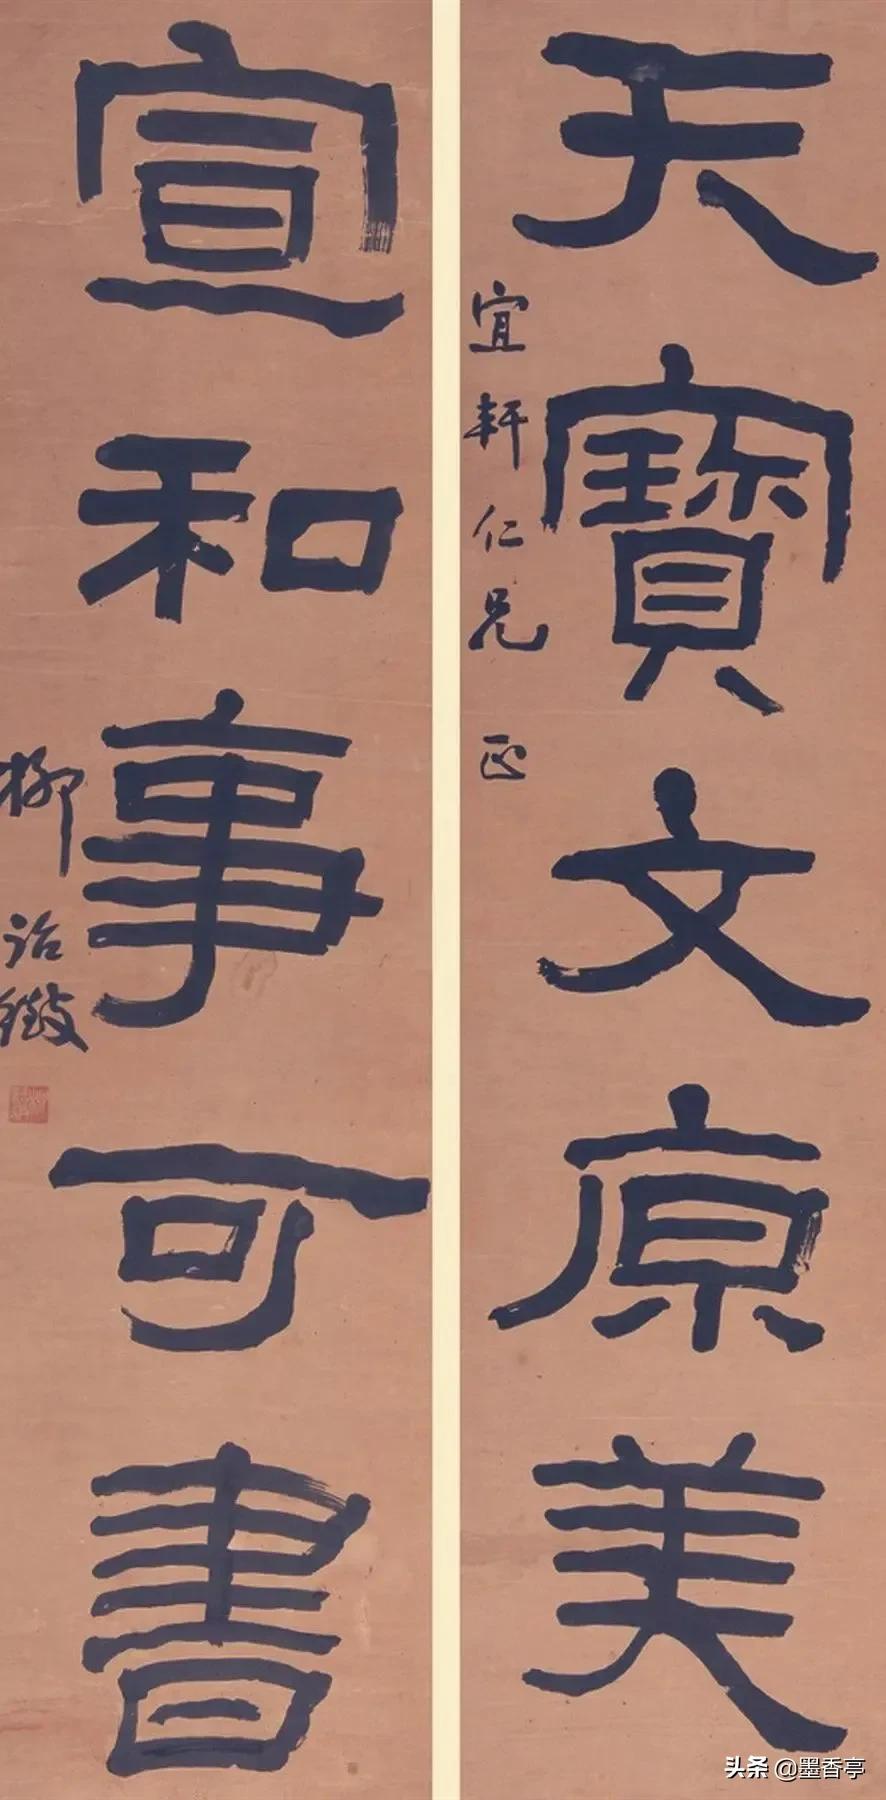 天寶文原美
宜軒仁兄 正
宣和事可書
柳詒徵
头条 @墨香亭